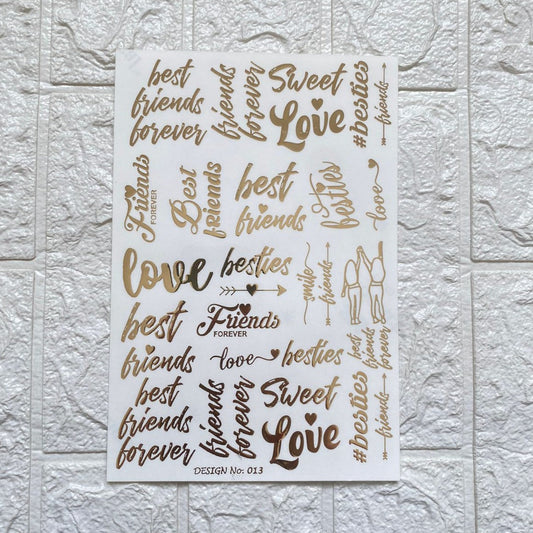 best
friends
forever
friends
forever
Sweet
Love
#besties
friends
Friends
FOREVER
Best
friends
best
friends
besties
love
love
besties
smile
friends
best
friends
Friends
FOREVER
love
besties
best
friends
forever
best
friends
forever
friends
forever
Sweet
Love
#besties
friends
DESIGN No: 013